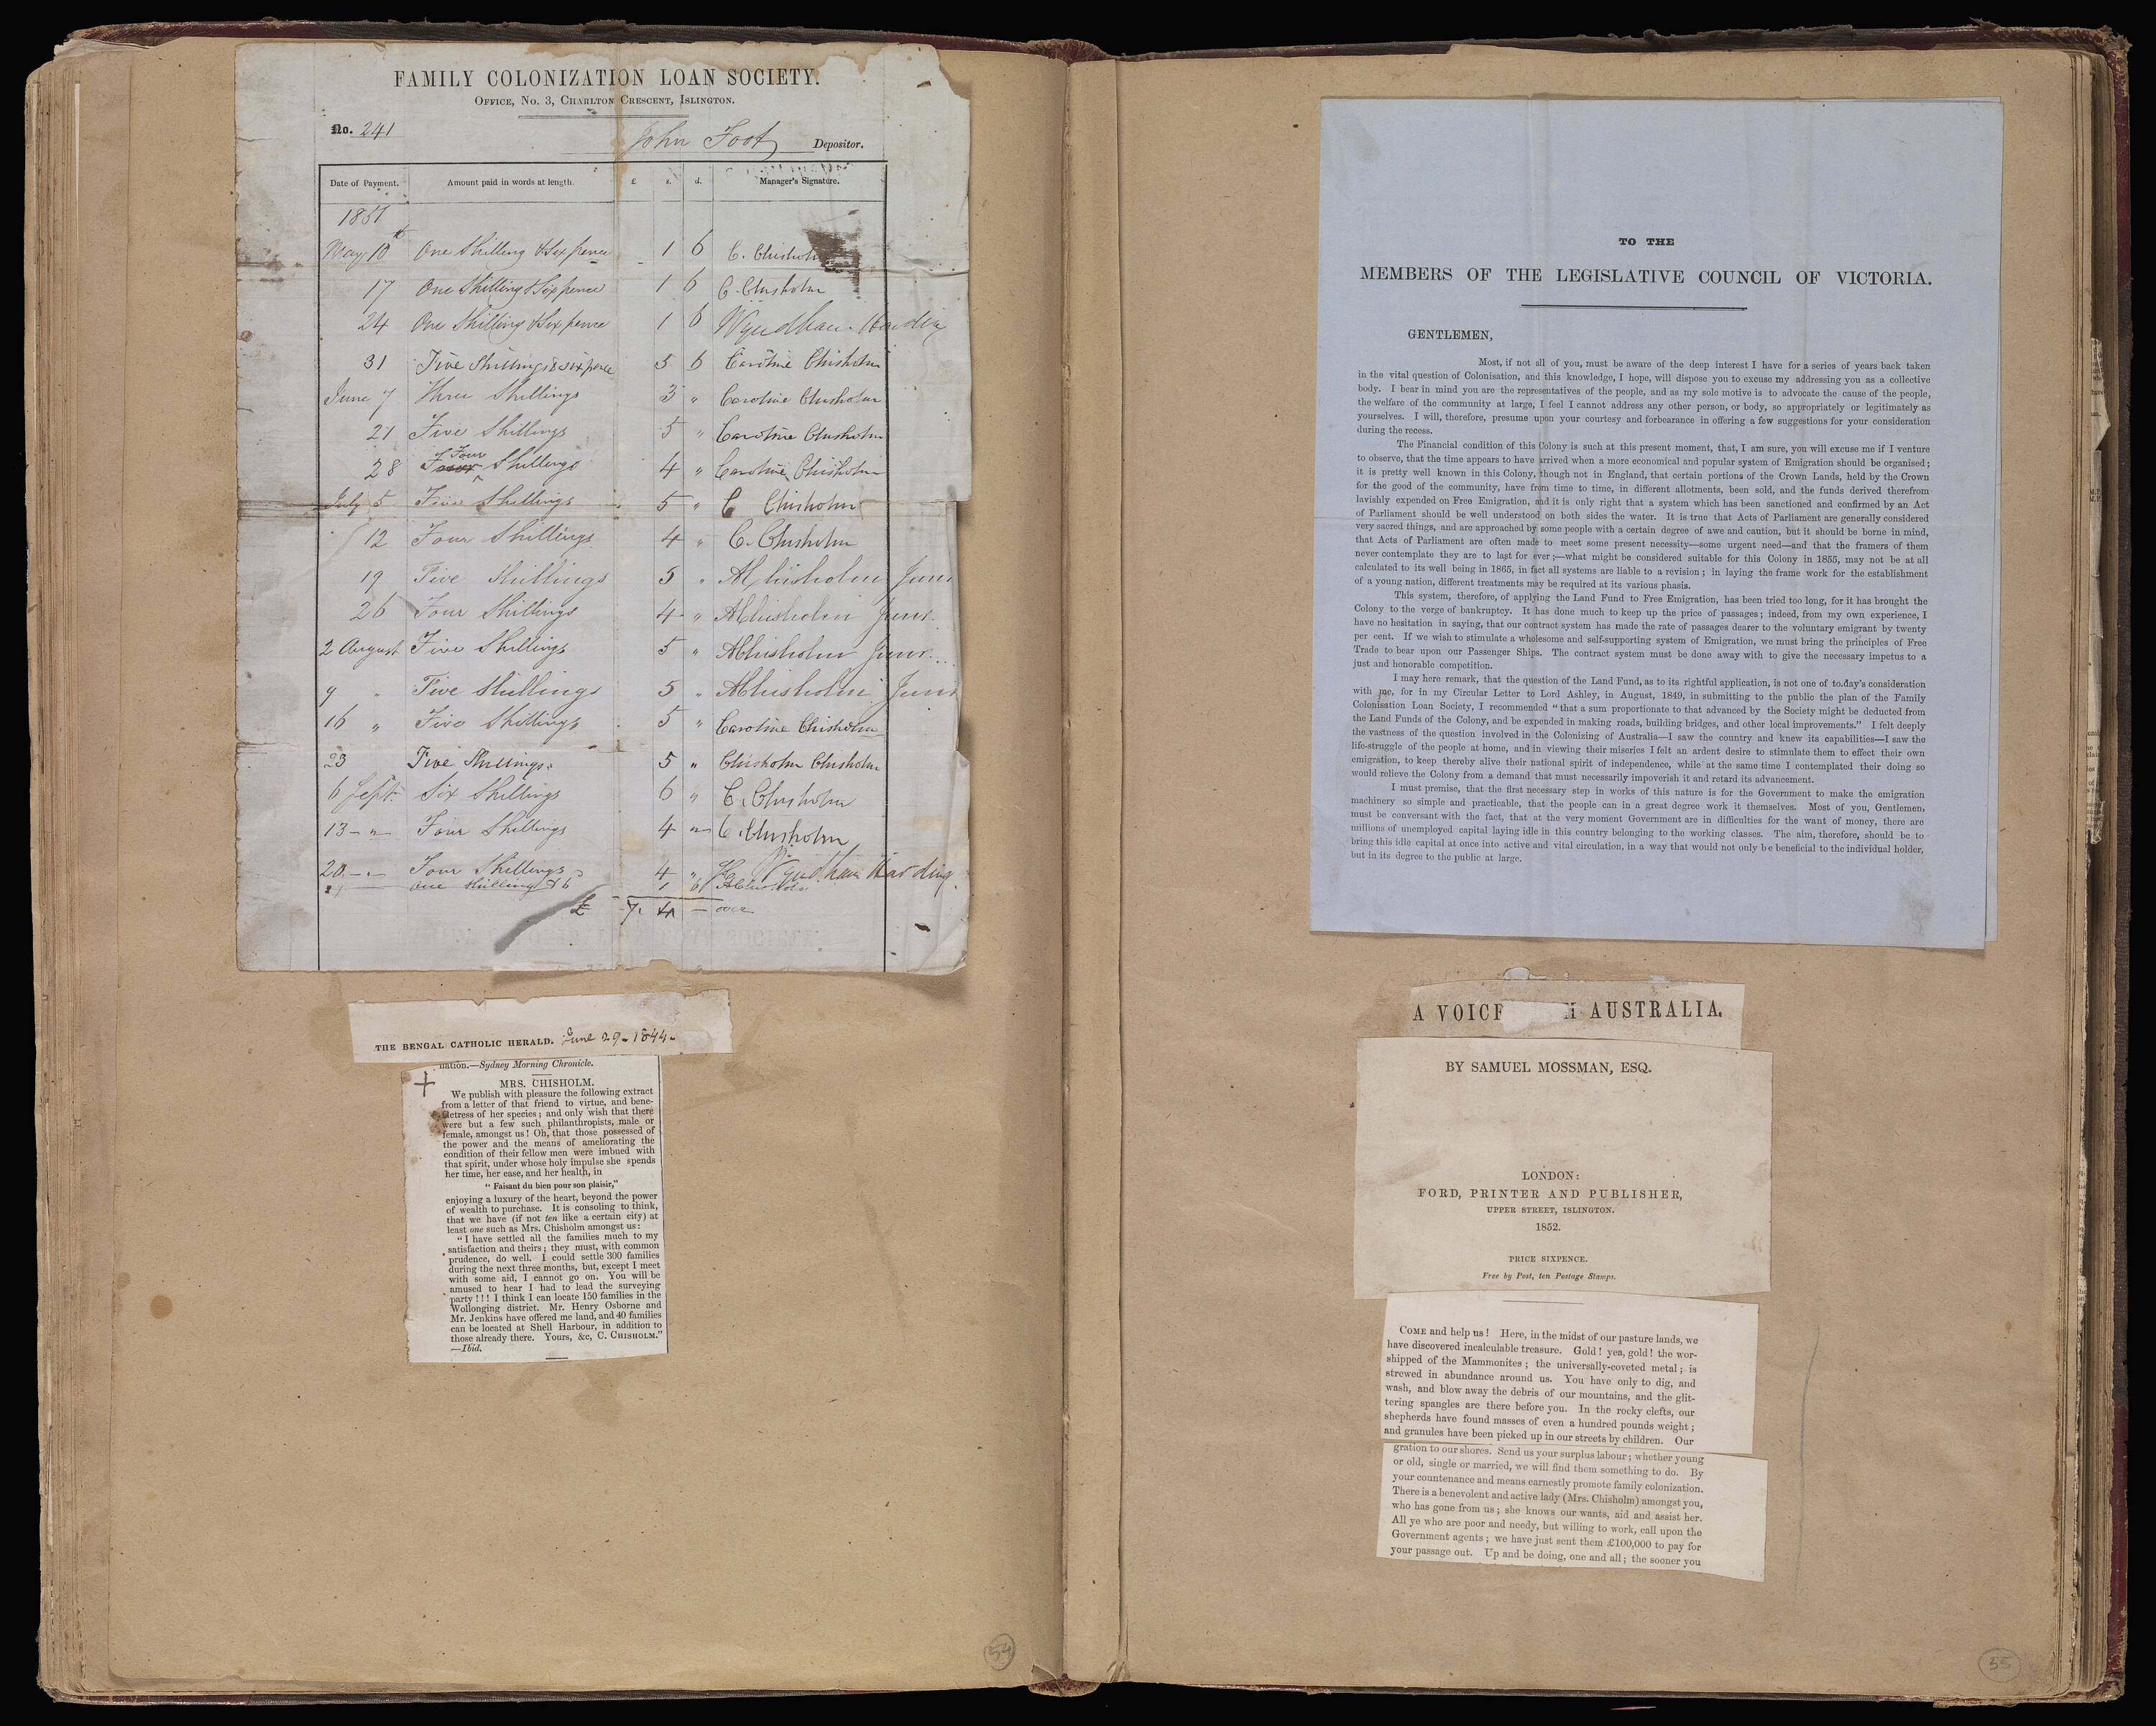 FAMILY COLONIZATION LOAN SOCIETY.
OFFICE, No. 3, CHARLTON CRESCENT, ISLINGTON.
No. 241
John Foot Depositor.
Date of Payment. Amount paid in words at length. £ s. d. Manager's Signature.
1851
May 10th One Shilling & Six pence 1 6 C. Chisholm
17 One Shilling & Six pence 1 6 C. Chisholm
24 One Shilling & Six pence 1 6 Wyndham Harding
31 Five Shillings & six pence 5 6 Caroline Chisholm
June 7 Three Shillings 3 " Caroline Chisholm
21 Five Shillings 5 " Caroline Chisholm
28 Four Shillings 4 " Caroline Chisholm
July 5 Five Shillings 5 " C Chisholm
12 Four Shillings 4 " C. Chisholm
19 Five Shillings 5 " AChisholm Junr
26 Four Shillings 4 " AChisholm Junr
2 August Five Shillings 5 " AChisholm Junr...
9 " Five Shillings 5 " AChisholm Junr
16 " Five Shillings 5 " Caroline Chisholm
23 Five Shillings 5 " Chisholm Chisholm
6 Sept Six Shillings 6 " C. Chisholm
13 - " - Four Shillings 4 " C. Chisholm
20 - " - Four Shillings 4 " Wyndham Harding
One Shilling & 6 1 6
£ 7. 4 - over
THE BENGAL CATHOLIC HERALD. June 29-1844-
nation.—Sydney Morning Chronicle.
+
MRS. CHISHOLM.
We publish with pleasure the following extract
from a letter of that friend to virtue, and bene-
factress of her species; and only wish that there
were but a few such philanthropists, male or
female, amongst us! Oh, that those possessed of
the power and the means of ameliorating the
condition of their fellow men were imbued with
that spirit, under whose holy impulse she spends
her time, her ease, and her health, in
" Faisant du bien pour son plaisir,"
enjoying a luxury of the heart, beyond the power
of wealth to purchase. It is consoling to think,
that we have (if not ten like a certain city) at
least one such as Mrs. Chisholm amongst us:
"I have settled all the families much to my
satisfaction and theirs; they must, with common
prudence, do well. I could settle 300 families
during the next three months, but, except I meet
with some aid, I cannot go on. You will be
amused to hear I had to lead the surveying
party!!! I think I can locate 150 families in the
Wollonging district. Mr. Henry Osborne and
Mr. Jenkins have offered me land, and 40 families
can be located at Shell Harbour, in addition to
those already there. Yours, &c, C. CHISHOLM."
—Ibid.
54
TO THE
MEMBERS OF THE LEGISLATIVE COUNCIL OF VICTORIA.
GENTLEMEN,
Most, if not all of you, must be aware of the deep interest I have for a series of years back taken
in the vital question of Colonisation, and this knowledge, I hope, will dispose you to excuse my addressing you as a collective
body. I bear in mind you are the representatives of the people, and as my sole motive is to advocate the cause of the people,
the welfare of the community at large, I feel I cannot address any other person, or body, so appropriately or legitimately as
yourselves. I will, therefore, presume upon your courtesy and forbearance in offering a few suggestions for your consideration
during the recess.
The Financial condition of this Colony is such at this present moment, that, I am sure, you will excuse me if I venture
to observe, that the time appears to have arrived when a more economical and popular system of Emigration should be organised;
it is pretty well known in this Colony, though not in England, that certain portions of the Crown Lands, held by the Crown
for the good of the community, have from time to time, in different allotments, been sold, and the funds derived therefrom
lavishly expended on Free Emigration, and it is only right that a system which has been sanctioned and confirmed by an Act
of Parliament should be well understood on both sides the water. It is true that Acts of Parliament are generally considered
very sacred things, and are approached by some people with a certain degree of awe and caution, but it should be borne in mind,
that Acts of Parliament are often made to meet some present necessity—some urgent need—and that the framers of them
never contemplate they are to last for ever;—what might be considered suitable for this Colony in 1855, may not be at all
calculated to its well being in 1865, in fact all systems are liable to a revision; in laying the frame work for the establishment
of a young nation, different treatments may be required at its various phasis.
This system, therefore, of applying the Land Fund to Free Emigration, has been tried too long, for it has brought the
Colony to the verge of bankruptcy. It has done much to keep up the price of passages; indeed, from my own experience, I
have no hesitation in saying, that our contract system has made the rate of passages dearer to the voluntary emigrant by twenty
per cent. If we wish to stimulate a wholesome and self-supporting system of Emigration, we must bring the principles of Free
Trade to bear upon our Passenger Ships. The contract system must be done away with to give the necessary impetus to a
just and honorable competition.
I may here remark, that the question of the Land Fund, as to its rightful application, is not one of to.day's consideration
with me, for in my Circular Letter to Lord Ashley, in August, 1849, in submitting to the public the plan of the Family
Colonisation Loan Society, I recommended "that a sum proportionate to that advanced by the Society might be deducted from
the Land Funds of the Colony, and be expended in making roads, building bridges, and other local improvements." I felt deeply
the vastness of the question involved in the Colonizing of Australia—I saw the country and knew its capabilities—I saw the
life-struggle of the people at home, and in viewing their miseries I felt an ardent desire to stimulate them to effect their own
emigration, to keep thereby alive their national spirit of independence, while at the same time I contemplated their doing so
would relieve the Colony from a demand that must necessarily impoverish it and retard its advancement.
I must premise, that the first necessary step in works of this nature is for the Government to make the emigration
machinery so simple and practicable, that the people can in a great degree work it themselves. Most of you, Gentlemen,
must be conversant with the fact, that at the very moment Government are in difficulties for the want of money, there are
millions of unemployed capital laying idle in this country belonging to the working classes. The aim, therefore, should be to
bring this idle capital at once into active and vital circulation, in a way that would not only be beneficial to the individual holder,
but in its degree to the public at large.
A VOICE M AUSTRALIA.
BY SAMUEL MOSSMAN, ESQ.
LONDON:
FORD, PRINTER AND PUBLISHER,
UPPER STREET, ISLINGTON.
1852.
PRICE SIXPENCE.
Free by Post, ten Postage Stamps.
COME and help us! Here, in the midst of our pasture lands, we
have discovered incalculable treasure. Gold! yea, gold! the wor-
shipped of the Mammonites; the universally-coveted metal; is
strewed in abundance around us. You have only to dig, and
wash, and blow away the debris of our mountains, and the glit-
tering spangles are there before you. In the rocky clefts, our
shepherds have found masses of even a hundred pounds weight;
and granules have been picked up in our streets by children. Our
gration to our shores. Send us your surplus labour; whether young
or old, single or married, we will find them something to do. By
your countenance and means earnestly promote family colonization.
There is a benevolent and active lady (Mrs. Chisholm) amongst you,
who has gone from us; she knows our wants, aid and assist her.
All ye who are poor and needy, but willing to work, call upon the
Government agents; we have just sent them £100,000 to pay for
your passage out. Up and be doing, one and all; the sooner you
55